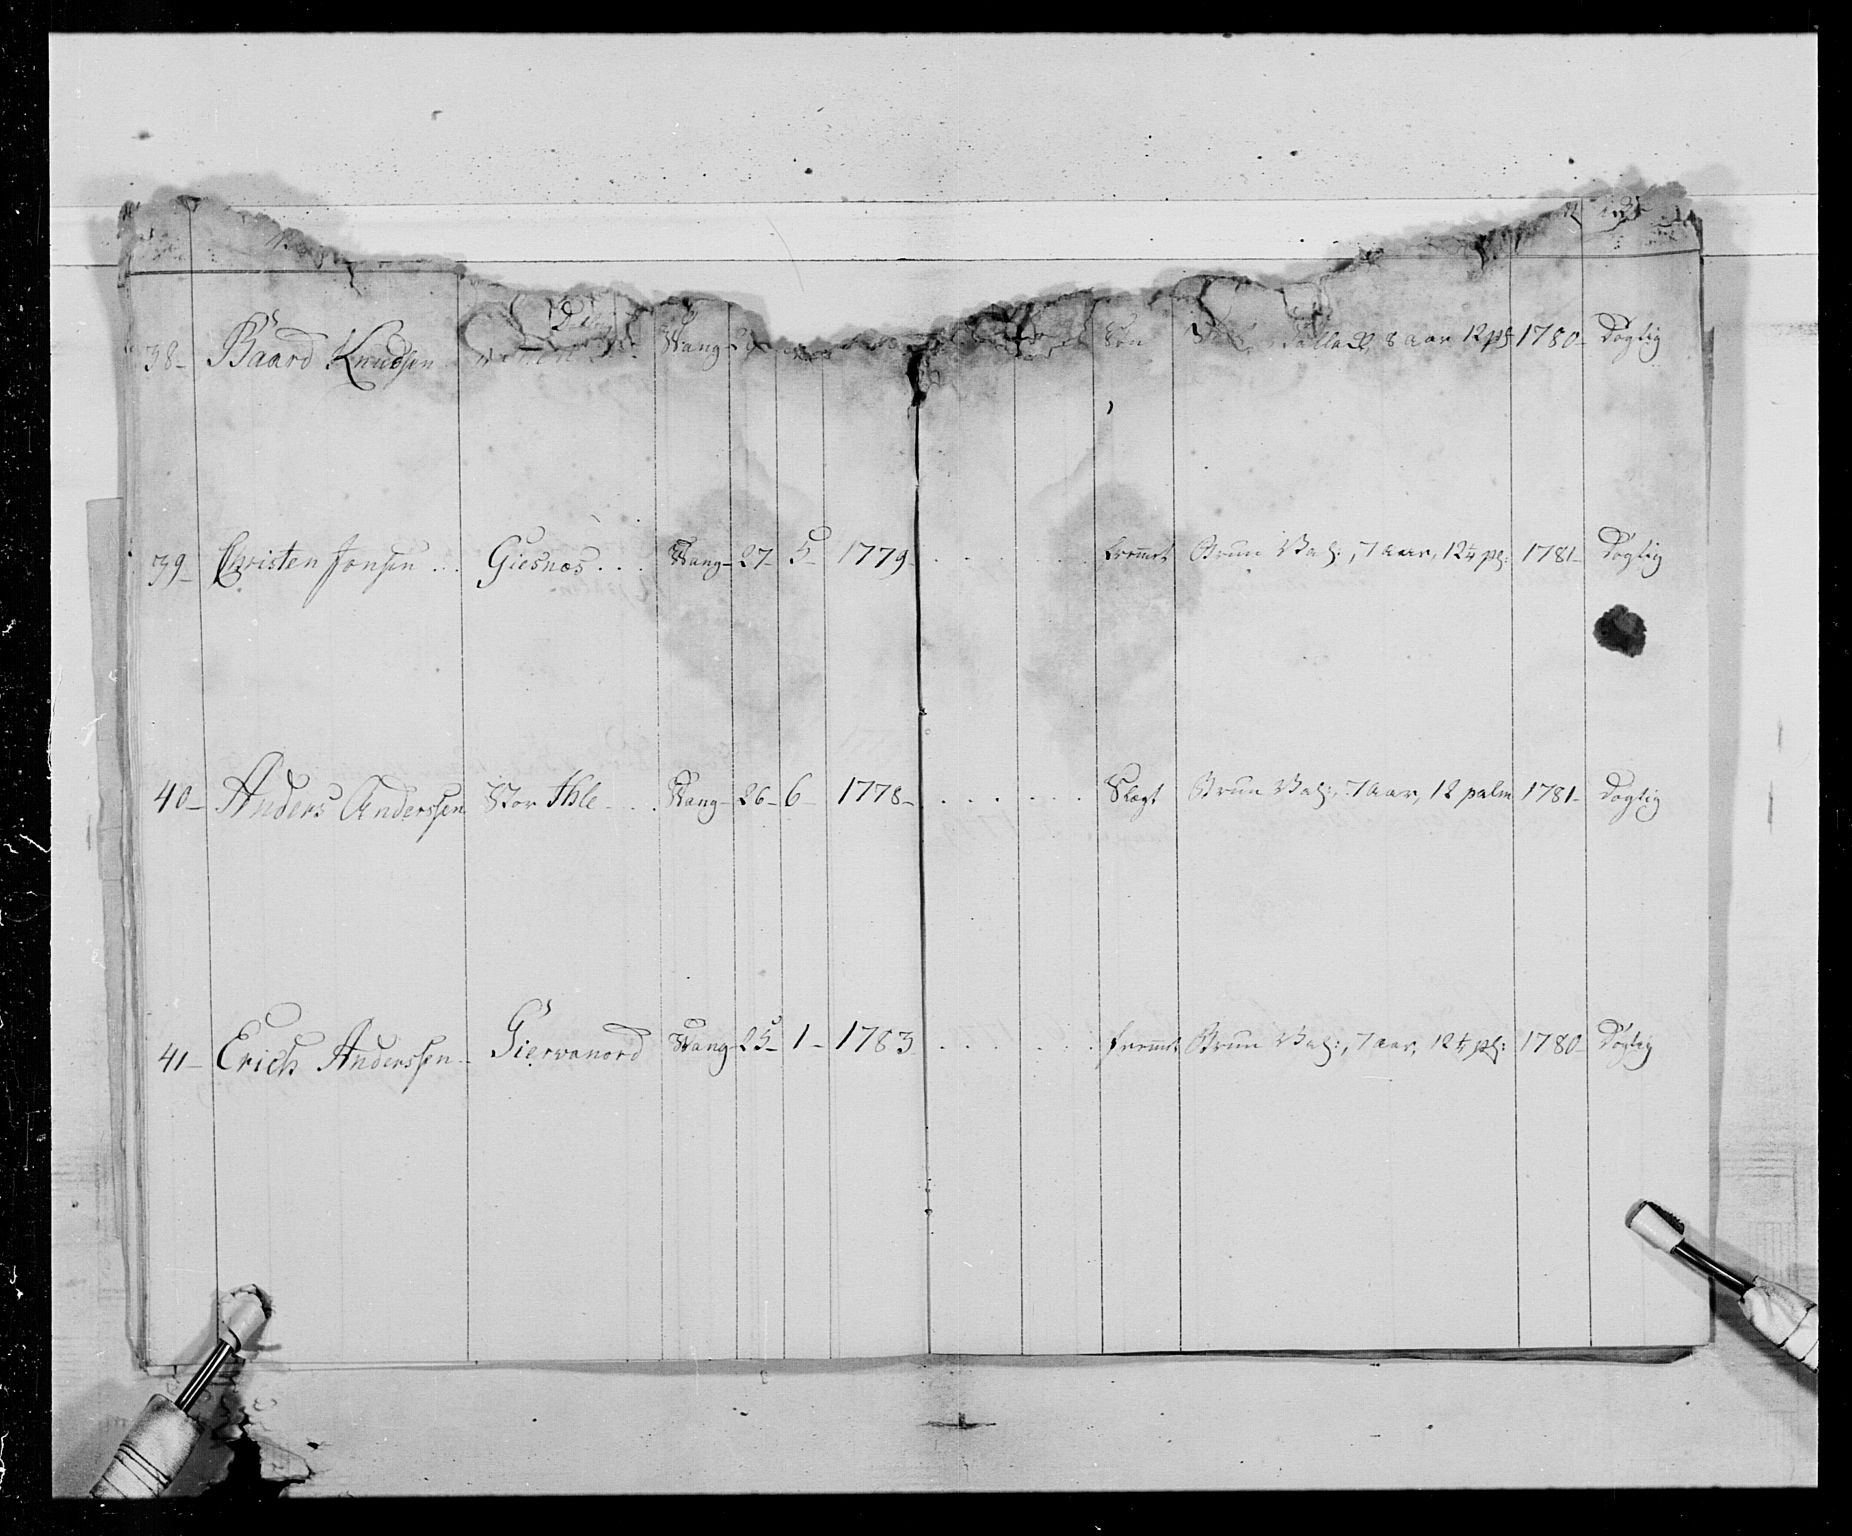 38- Baard Knudsen Wang- Søn 8 aar 12 pl: 1780- Dygtig
39- Christen Jonsen . . . Giesnæs . . . Wang- 27- 5- 1779- . . . . . fremmet Bruun Val:, 7 aar, 12¼ pl: 1781- Dygtig
40- Anders Anderssen Stor Ihle - . . Wang- 26- 6- 1778- . . . . . . Slægt Bruun Val:, 7 aar, 12 palm 1781- Dygtig
41- Erich Anderssen- Giervanord Wang- 25- 1- 1783 . . . . . . fremmet Bruun Val:, 7 aar, 12¼ pl: 1780- Dygtig